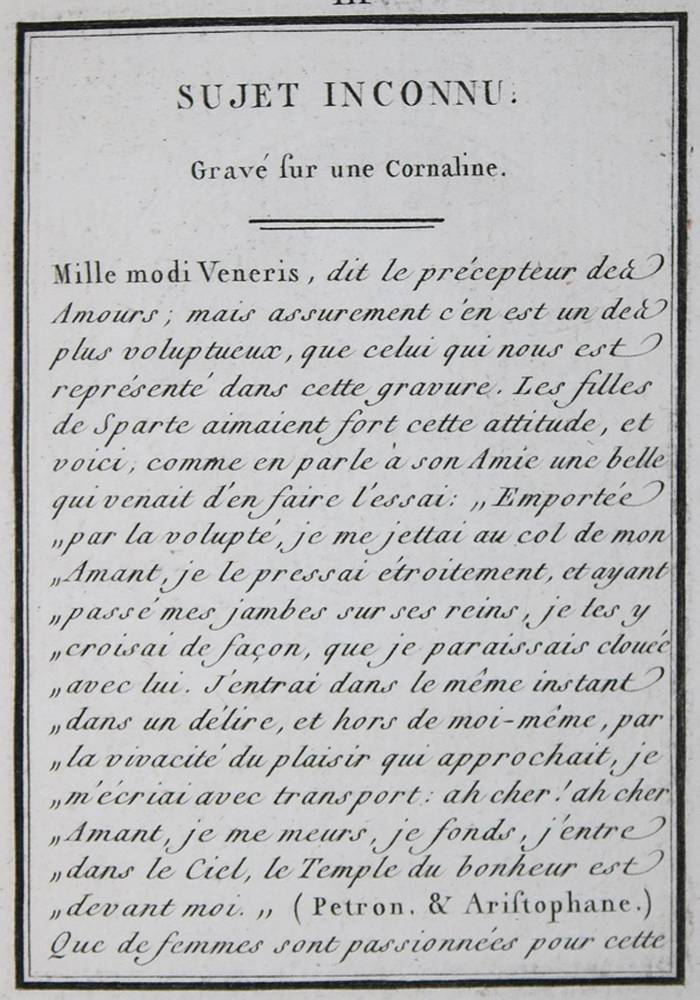 III
SUJET INCONNU.
Gravé ſur une Cornaline.
Mille modi Veneris, dit le précepteur des
Amours; mais assurement c'en est un des
plus voluptueux, que celui qui nous est
représenté dans cette gravure. Les filles
de Sparte aimaient fort cette attitude, et
voici, comme en parle à son Amie une belle
qui venait d'en faire l'essai: „Emportée
„par la volupté, je me jettai au col de mon
„Amant, je le pressai étroitement, et ayant
„passé mes jambes sur ses reins, je les y
„croisai de façon, que je paraissais clouée
„avec lui. J'entrai dans le même instant
„dans un délire, et hors de moi-même, par
„la vivacité du plaisir qui approchait, je
„m'écriai avec transport: ah cher! ah cher
„Amant, je me meurs, je fonds, j'entre
„dans le Ciel, le Temple du bonheur est
„devant moi. „ (Petron. & Ariſtophane.)
Que de femmes sont passionnées pour cette